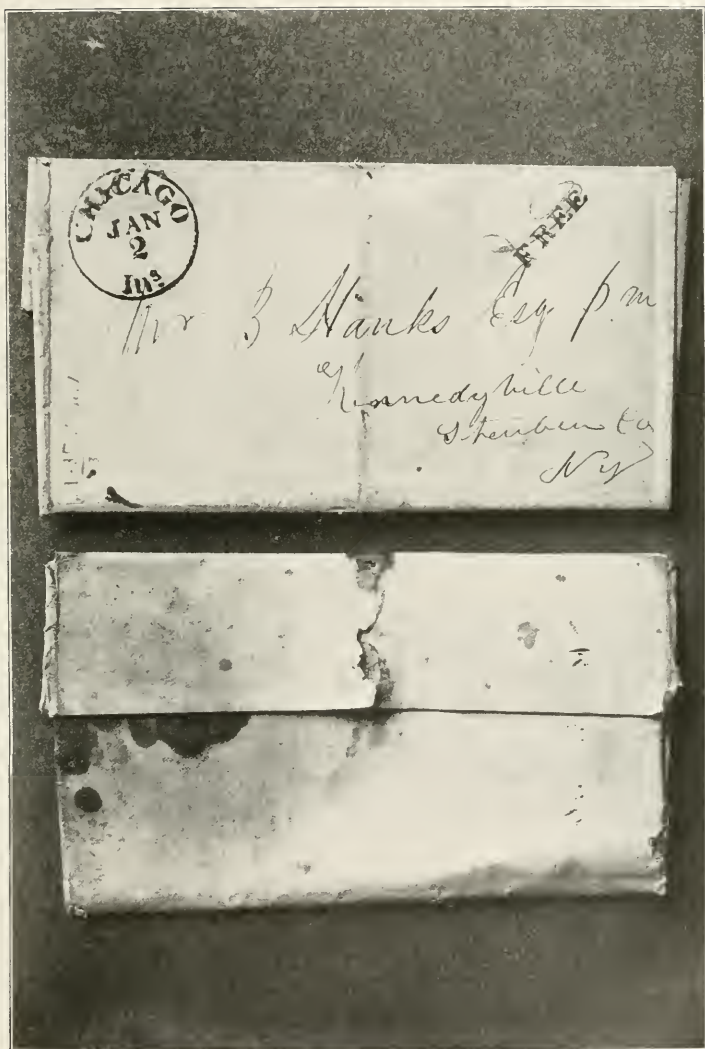 CHICAGO
JAN
2
Ills
FREE
Mr B Hanks Esq p.m
Kennedyville
Steuben Co
Ny